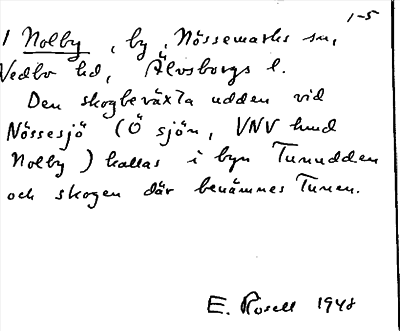 1-5
1 Nolby, by, Nössemarks sn,
Vedbo hd, Älvsborgs l.
Den skogbeväxta udden vid
Nössesjö (Ö sjön, VNV
Nolby) kallas i byn Tunudden
och skogen där benämnes Tunen.
E. Rosell 1948